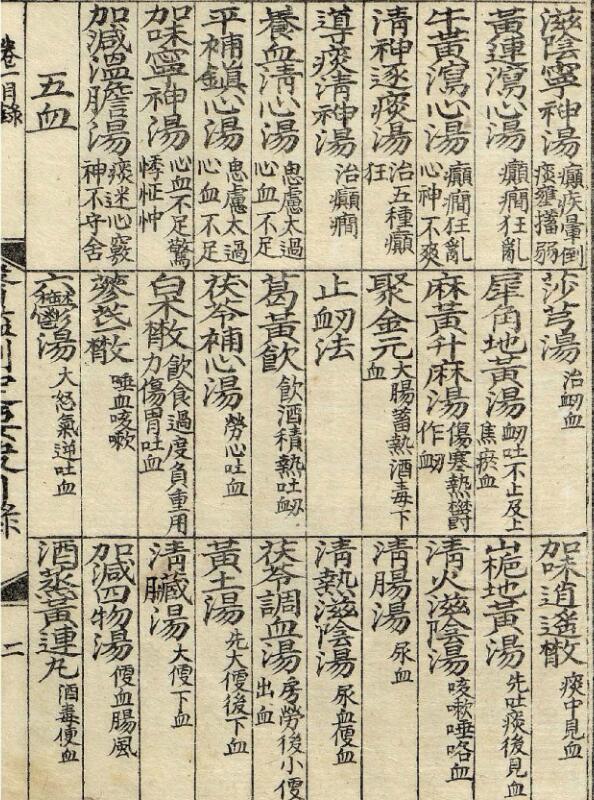 滋陰寧神湯 癲疾暈倒痰壅搐弱
黃連瀉心湯 癲癇狂亂
牛黃瀉心湯 癲癇狂亂心神不爽
清神逐痰湯 治五種癲狂
導痰清神湯 治癲癇
養血清心湯 思慮太過心血不足
平補鎮心湯 思慮太過心血不足
加味寧神湯 心血不足驚悸怔忡
加減溫膽湯 痰迷心竅神不守舍
五血
莎芎湯 治衄血
犀角地黃湯 衄吐不止及上焦瘀血
麻黃升麻湯 傷寒熱鬱作衄
聚金元 大腸蓄熱酒毒下血
止衄法
葛黃飲 飲酒積熱吐衄
茯苓補心湯 勞心吐血
白朮散 飲食過度負重用力傷胃吐血
蔘芪散 唾血咳嗽
六鬱湯 大怒氣逆吐血
加味逍遙散 痰中見血
山梔地黃湯 先吐痰後見血
清火滋陰湯 咳嗽唾咯血
清腸湯 尿血
清熱滋陰湯 尿血便血
茯苓調血湯 房勞後小便出血
黃土湯 先大便後下血
清臟湯 大便下血
加減四物湯 便血腸風
酒蒸黃連丸 酒毒便血
卷一目錄
目錄
二